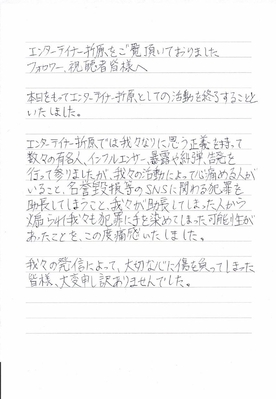 エンターライナー折原をご覧頂いておりました
フォロワー、視聴者皆様へ
本日をもってエンターライナー折原としての活動を終了することと
いたしました。
エンターライナー折原では我々なりに思う正義を持って
数々の有名人、インフルエンサー、暴露や糾弾、告発を
行って参りましたが、我々の活動によって心痛める人が
いること、名誉毀損等のSNSに関わる犯罪を
助長してしまうこと、我々が助長してしまった人から
煽られ我々も犯罪に手を染めてしまった可能性が
あったことを、この度痛感いたしました。
我々の発信によって、大切な心に傷を負ってしまった
皆様、大変申し訳ありませんでした。